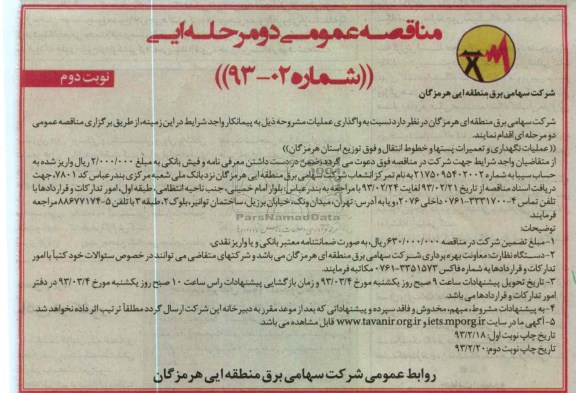 مناقصه عمومی دو مرحله ایی
((شماره ۰۲-۹۳))
نوبت دوم
شرکت سهامی برق منطقه ایی هرمزگان
شرکت سهامی برق منطقه ای هرمزگان در نظر دارد نسبت به واگذاری عملیات مشروحه ذیل به پیمانکار واجد شرایط در این زمینه، از طریق برگزاری مناقصه عمومی
دو مرحله ای اقدام نمایند.
((عملیات نگهداری و تعمیرات پستها و خطوط انتقال و فوق توزیع استان هرمزگان))
از متقاضیان واجد شرایط جهت شرکت در مناقصه فوق دعوت می گردد ضمن در دست داشتن معرفی نامه و فیش بانکی به مبلغ ۲/۰۰۰/۰۰۰ ریال واریز شده به
حساب سیبا به شماره ۲۱۷۵۰۹۵۴۰۲۰۰۲ به نام تمرکز انشعاب شرکت سهامی برق منطقه ایی هرمزگان نزد بانک ملی شعبه مرکزی بندرعباس کد ۷۸۰۱، جهت
دریافت اسناد مناقصه از تاریخ ۹۳/۰۲/۲۱ لغایت ۹۳/۰۲/۲۴ با مراجعه به بندرعباس: بلوار امام خمینی، جنب ناحیه انتظامی، طبقه اول، امور تدارکات و قراردادها با
تلفن تماس ۴-۳۳۳۱۷۰۰-۰۷۶۱ داخلی ۲۰۷۶، و یا به آدرس: تهران، میدان ونک، خیابان برزیل، ساختمان توانیر، بلوک ۲، طبقه ۳ با تلفن ۵-۸۸۶۷۷۱۷۴ مراجعه
فرمایند.
توضیحات:
۱- مبلغ تضمین شرکت در مناقصه ۶۳۰/۰۰۰/۰۰۰ ریال، به صورت ضمانتنامه معتبر بانکی و یا واریز نقدی.
۲- دستگاه نظارت: معاونت بهره برداری شرکت سهامی برق منطقه ای هرمزگان می باشد و شرکتهای متقاضی می توانند در خصوص سئوالات خود کتباً با امور
تدارکات و قراردادها به شماره فاکس ۳۳۵۱۵۷۳-۰۷۶۱ مکاتبه فرمایند.
۳- تاریخ تحویل پیشنهادات ساعت ۹ صبح روز یکشنبه مورخ ۹۳/۰۳/۴ و زمان بازگشایی پیشنهادات راس ساعت ۱۰ صبح روز یکشنبه مورخ ۹۳/۰۳/۴ در دفتر
امور تدارکات و قراردادها می باشد.
۴- به پیشنهادات مشروط، مبهم، مخدوش و فاقد سپرده و پیشنهاداتی که بعد از موعد مقرر به دبیرخانه این شرکت ارسال گردد مطلقاً ترتیب اثر داده نخواهد شد.
۵- آگهی ما در سایت iets.mporg.ir و www.tavanir.org.ir قابل مشاهده می باشد.
تاریخ چاپ نوبت اول: ۹۳/۲/۱۸
تاریخ چاپ نوبت دوم: ۹۳/۲/۲۰
روابط عمومی شرکت سهامی برق منطقه ایی هرمزگان
ParsNamadData